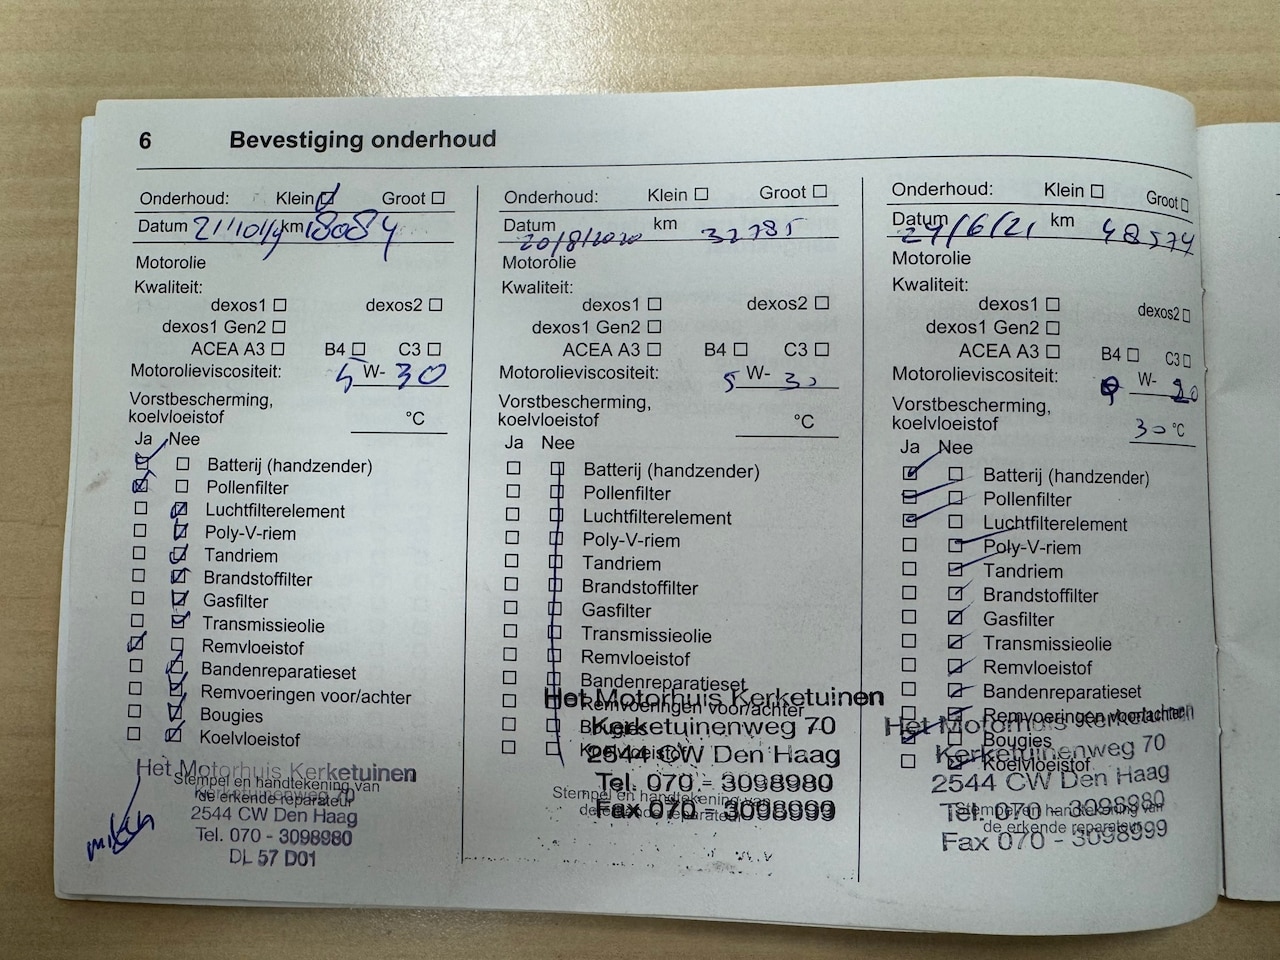 6 Bevestiging onderhoud
Onderhoud: Klein Groot
Datum 21/10/19 km 18084
Motorolie
Kwaliteit:
dexos1 dexos2
dexos1 Gen2
ACEA A3 B4 C3
Motorolieviscositeit: 5 W- 30
Vorstbescherming,
koelvloeistof °C
Ja Nee
Batterij (handzender)
Pollenfilter
Luchtfilterelement
Poly-V-riem
Tandriem
Brandstoffilter
Gasfilter
Transmissieolie
Remvloeistof
Bandenreparatieset
Remvoeringen voor/achter
Bougies
Koelvloeistof
Het Motorhuis Kerketuinen
Kerketuinenweg 70
Stempel en handtekening van
de erkende reparateur
2544 CW Den Haag
Tel. 070 - 3098980
DL 57 D01
Onderhoud: Klein Groot
Datum 20/8/2020 km 32785
Motorolie
Kwaliteit:
dexos1 dexos2
dexos1 Gen2
ACEA A3 B4 C3
Motorolieviscositeit: 5 W- 30
Vorstbescherming,
koelvloeistof °C
Ja Nee
Batterij (handzender)
Pollenfilter
Luchtfilterelement
Poly-V-riem
Tandriem
Brandstoffilter
Gasfilter
Transmissieolie
Remvloeistof
Bandenreparatieset
Remvoeringen voor/achter
Bougies
Koelvloeistof
Het Motorhuis Kerketuinen
Kerketuinenweg 70
2544 CW Den Haag
Tel. 070 - 3098980
Stempel en handtekening van
de erkende reparateur
Fax 070 - 3098999
Onderhoud: Klein Groot
Datum 24/6/21 km 48574
Motorolie
Kwaliteit:
dexos1 dexos2
dexos1 Gen2
ACEA A3 B4 C3
Motorolieviscositeit: W- 20
Vorstbescherming,
koelvloeistof 30 °C
Ja Nee
Batterij (handzender)
Pollenfilter
Luchtfilterelement
Poly-V-riem
Tandriem
Brandstoffilter
Gasfilter
Transmissieolie
Remvloeistof
Bandenreparatieset
Remvoeringen voor/achter
Bougies
Koelvloeistof
Het Motorhuis Kerketuinen
Kerketuinenweg 70
2544 CW Den Haag
Tel. 070 - 3098980
Stempel en handtekening van
de erkende reparateur
Fax 070 - 3098999